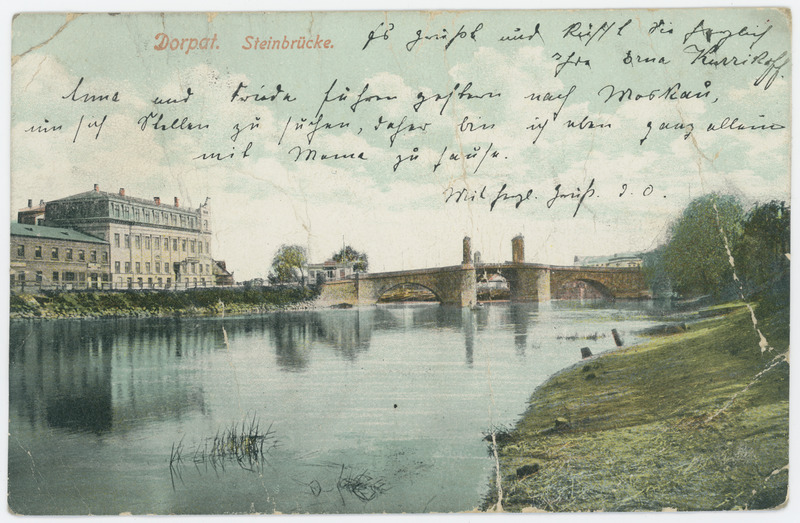 Dorpat. Steinbrücke.
Es grüßt und küßt Sie herzlich
Ihre Erna Kurrikoff.
Anna und Frieda fuhren gestern nach Moskau,
um sich Stellen zu suchen, daher bin ich eben ganz allein
mit Mama zu Hause.
Mit herzl. Gruß. d. O.